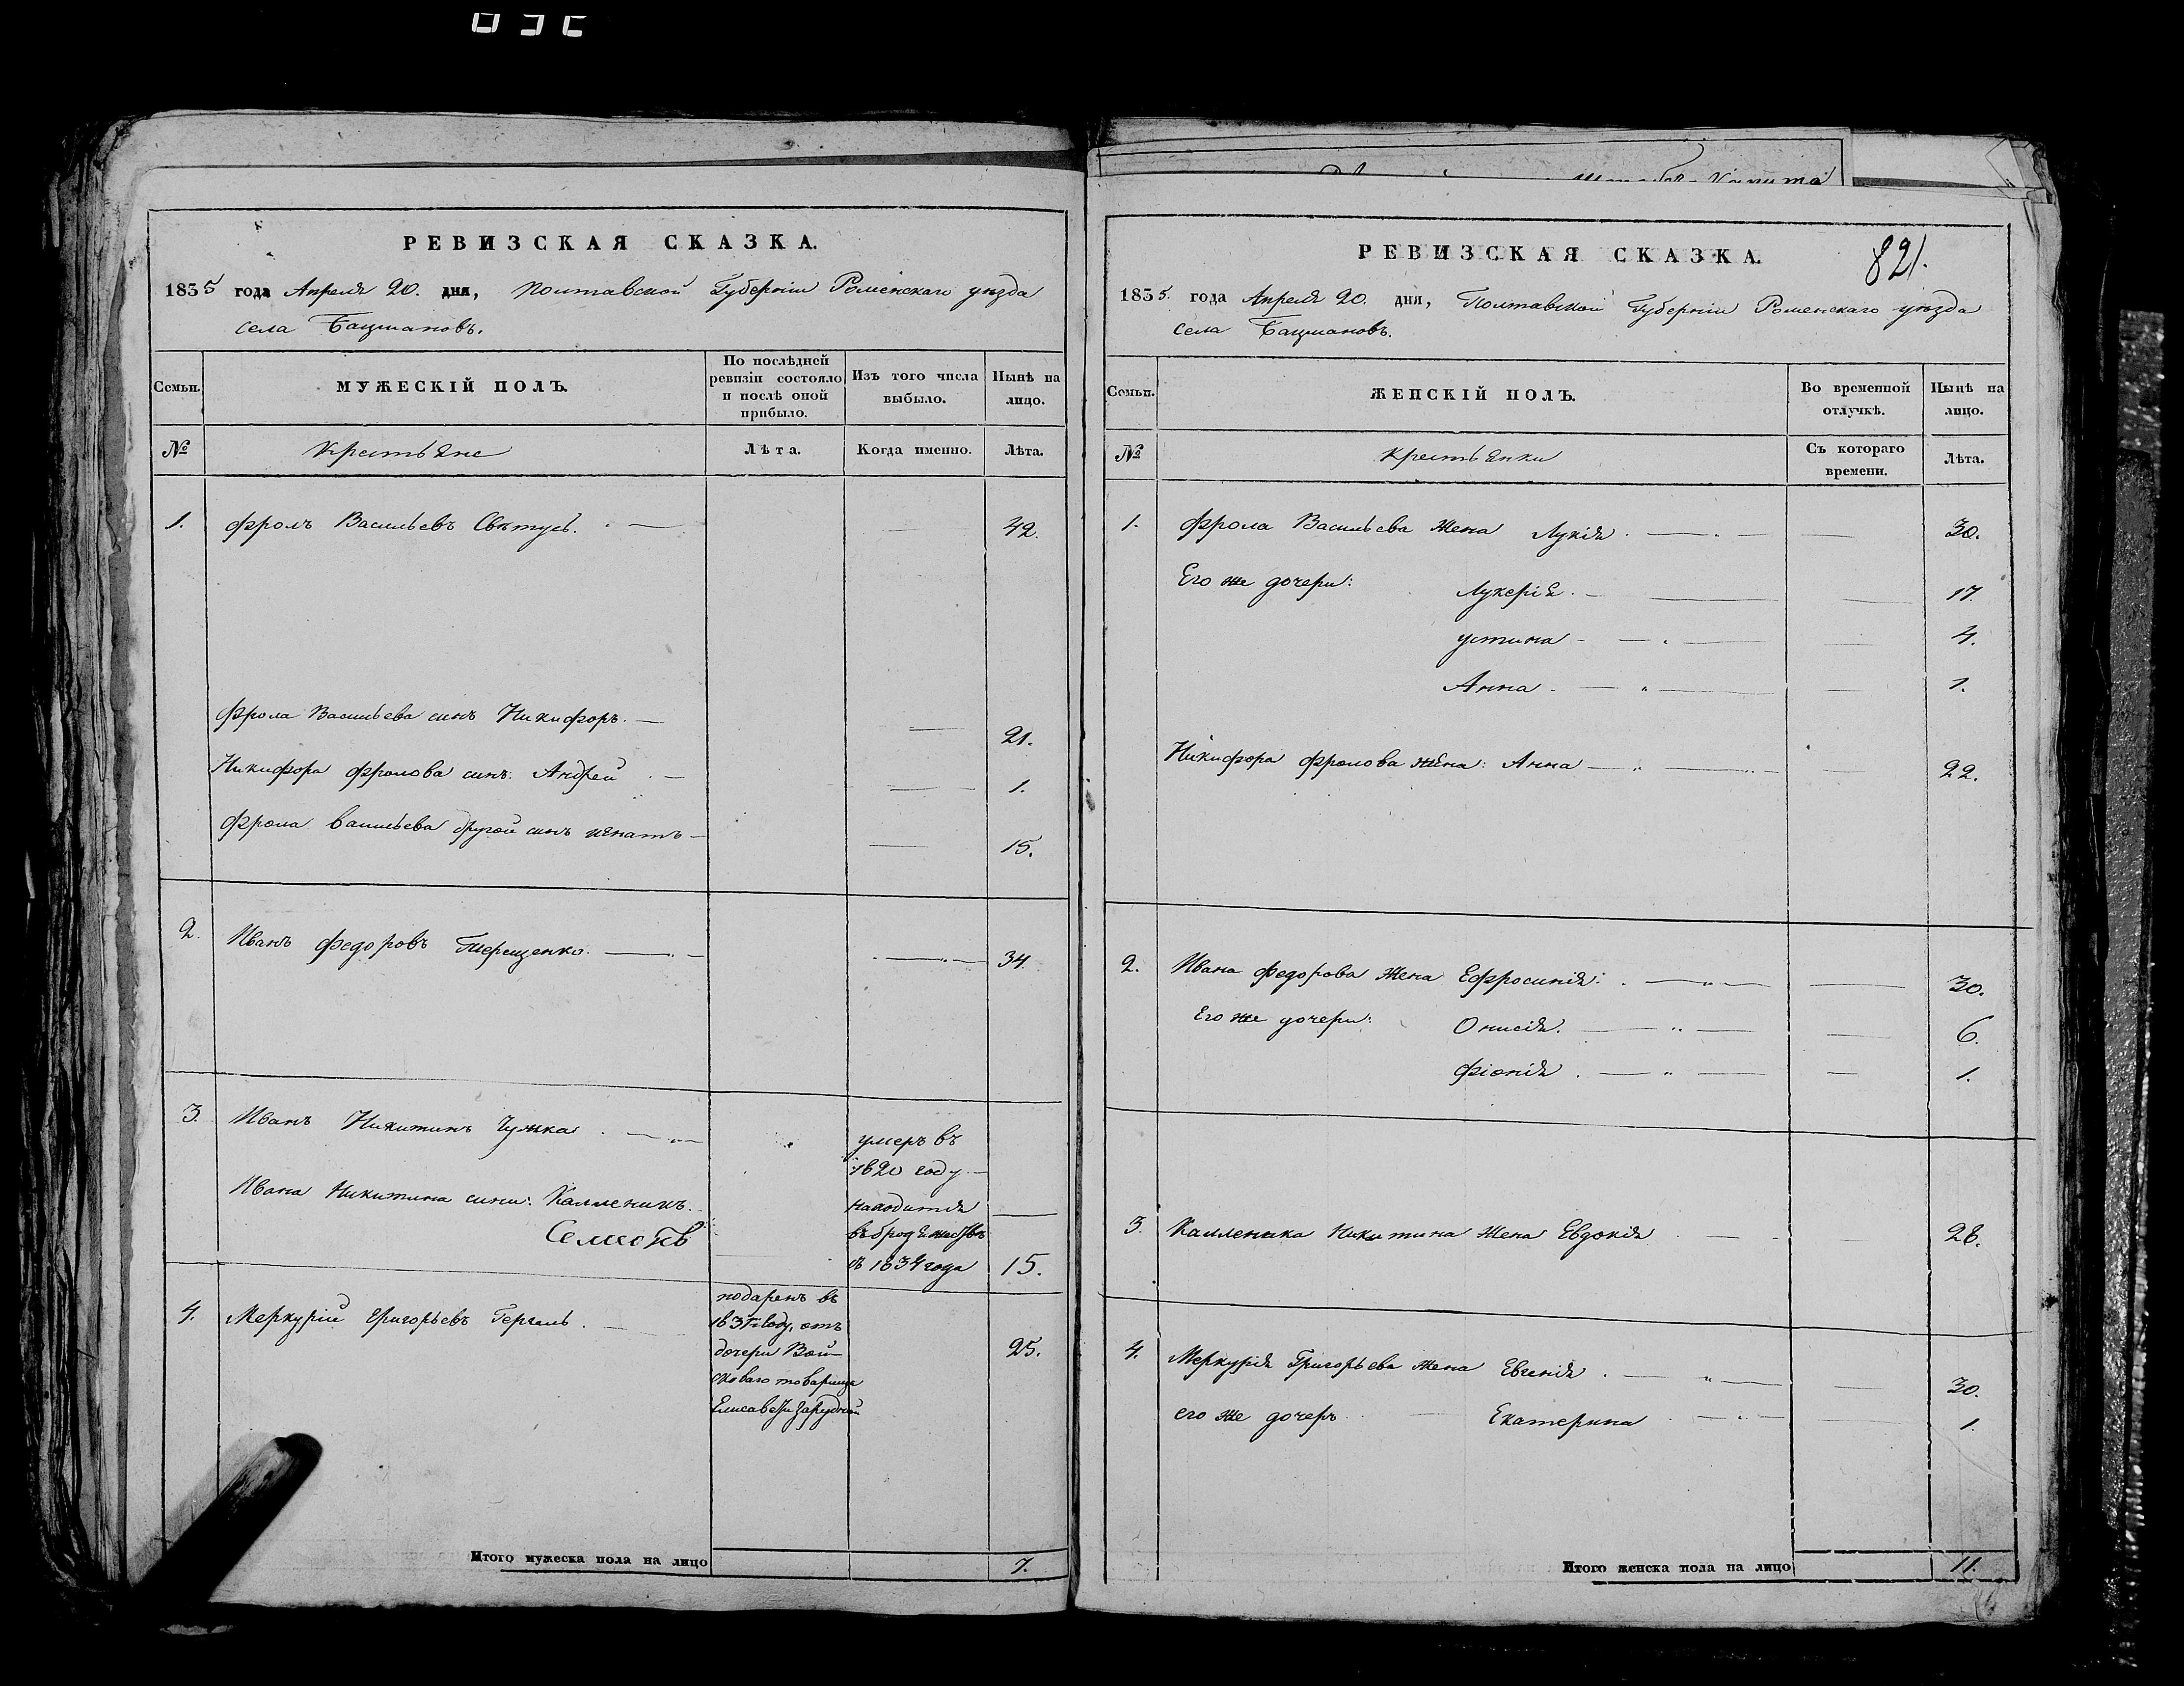 РЕВИЗСКАЯ СКАЗКА.
1835 года Апреля 20. дня, Полтавской Губерніи Роменскаго уѣзда
села Бацмановъ.
Семьи. МУЖЕСКІЙ ПОЛЪ. По послѣдней ревизіи состояло и послѣ оной прибыло. Изъ того числа выбыло. Нынѣ на лицо.
№ Крестьяне Лѣта. Когда именно. Лѣта.
1. Фролъ Васильевъ Свѣтусь. 42.
Фрола Васильева синъ Никифоръ. 21.
Никифора Фролова синъ. Андрей 1.
Фрола Васильева другой синъ Игнатъ 15.
2. Иванъ Федоровъ Терещенко. 34.
3. Иванъ Никитинъ Чужка умеръ въ
1820 году.
Ивана Никитина сини: Калленикъ. находится
въ бродяжествѣ
Семионъ съ 1834 года 15.
4. Меркурій Григорьевъ Гергель. 25.
подаренъ въ
году, отъ
дочери Вой-
сковаго товарища
Елисаветы Зарудной
Итого мужеска пола на лицо 7.
821.
РЕВИЗСКАЯ СКАЗКА.
1835. года Апреля 20. дня, Полтавской Губерніи Роменскаго уѣзда
села Бацмановъ.
Семьи. ЖЕНСКІЙ ПОЛЪ. Во временной отлучкѣ. Нынѣ на лицо.
№ Крестьянки Съ котораго времени. Лѣта.
1. Фрола Васильева жена Лукія. 30.
Его же дочери: Лукерія. 17.
Устина 4.
Анна. 1.
Никифора Фролова жена: Анна 22.
2. Ивана Федорова жена Ефросинія: 30.
Его же дочери: Онисія. 6.
Фіонія. 1.
3. Калленика Никитина жена Евдокія 28.
4. Меркурія Григорьева жена Евгенія. 30.
его же дочеръ Екатерина 1.
Итого женска пола на лицо 11.